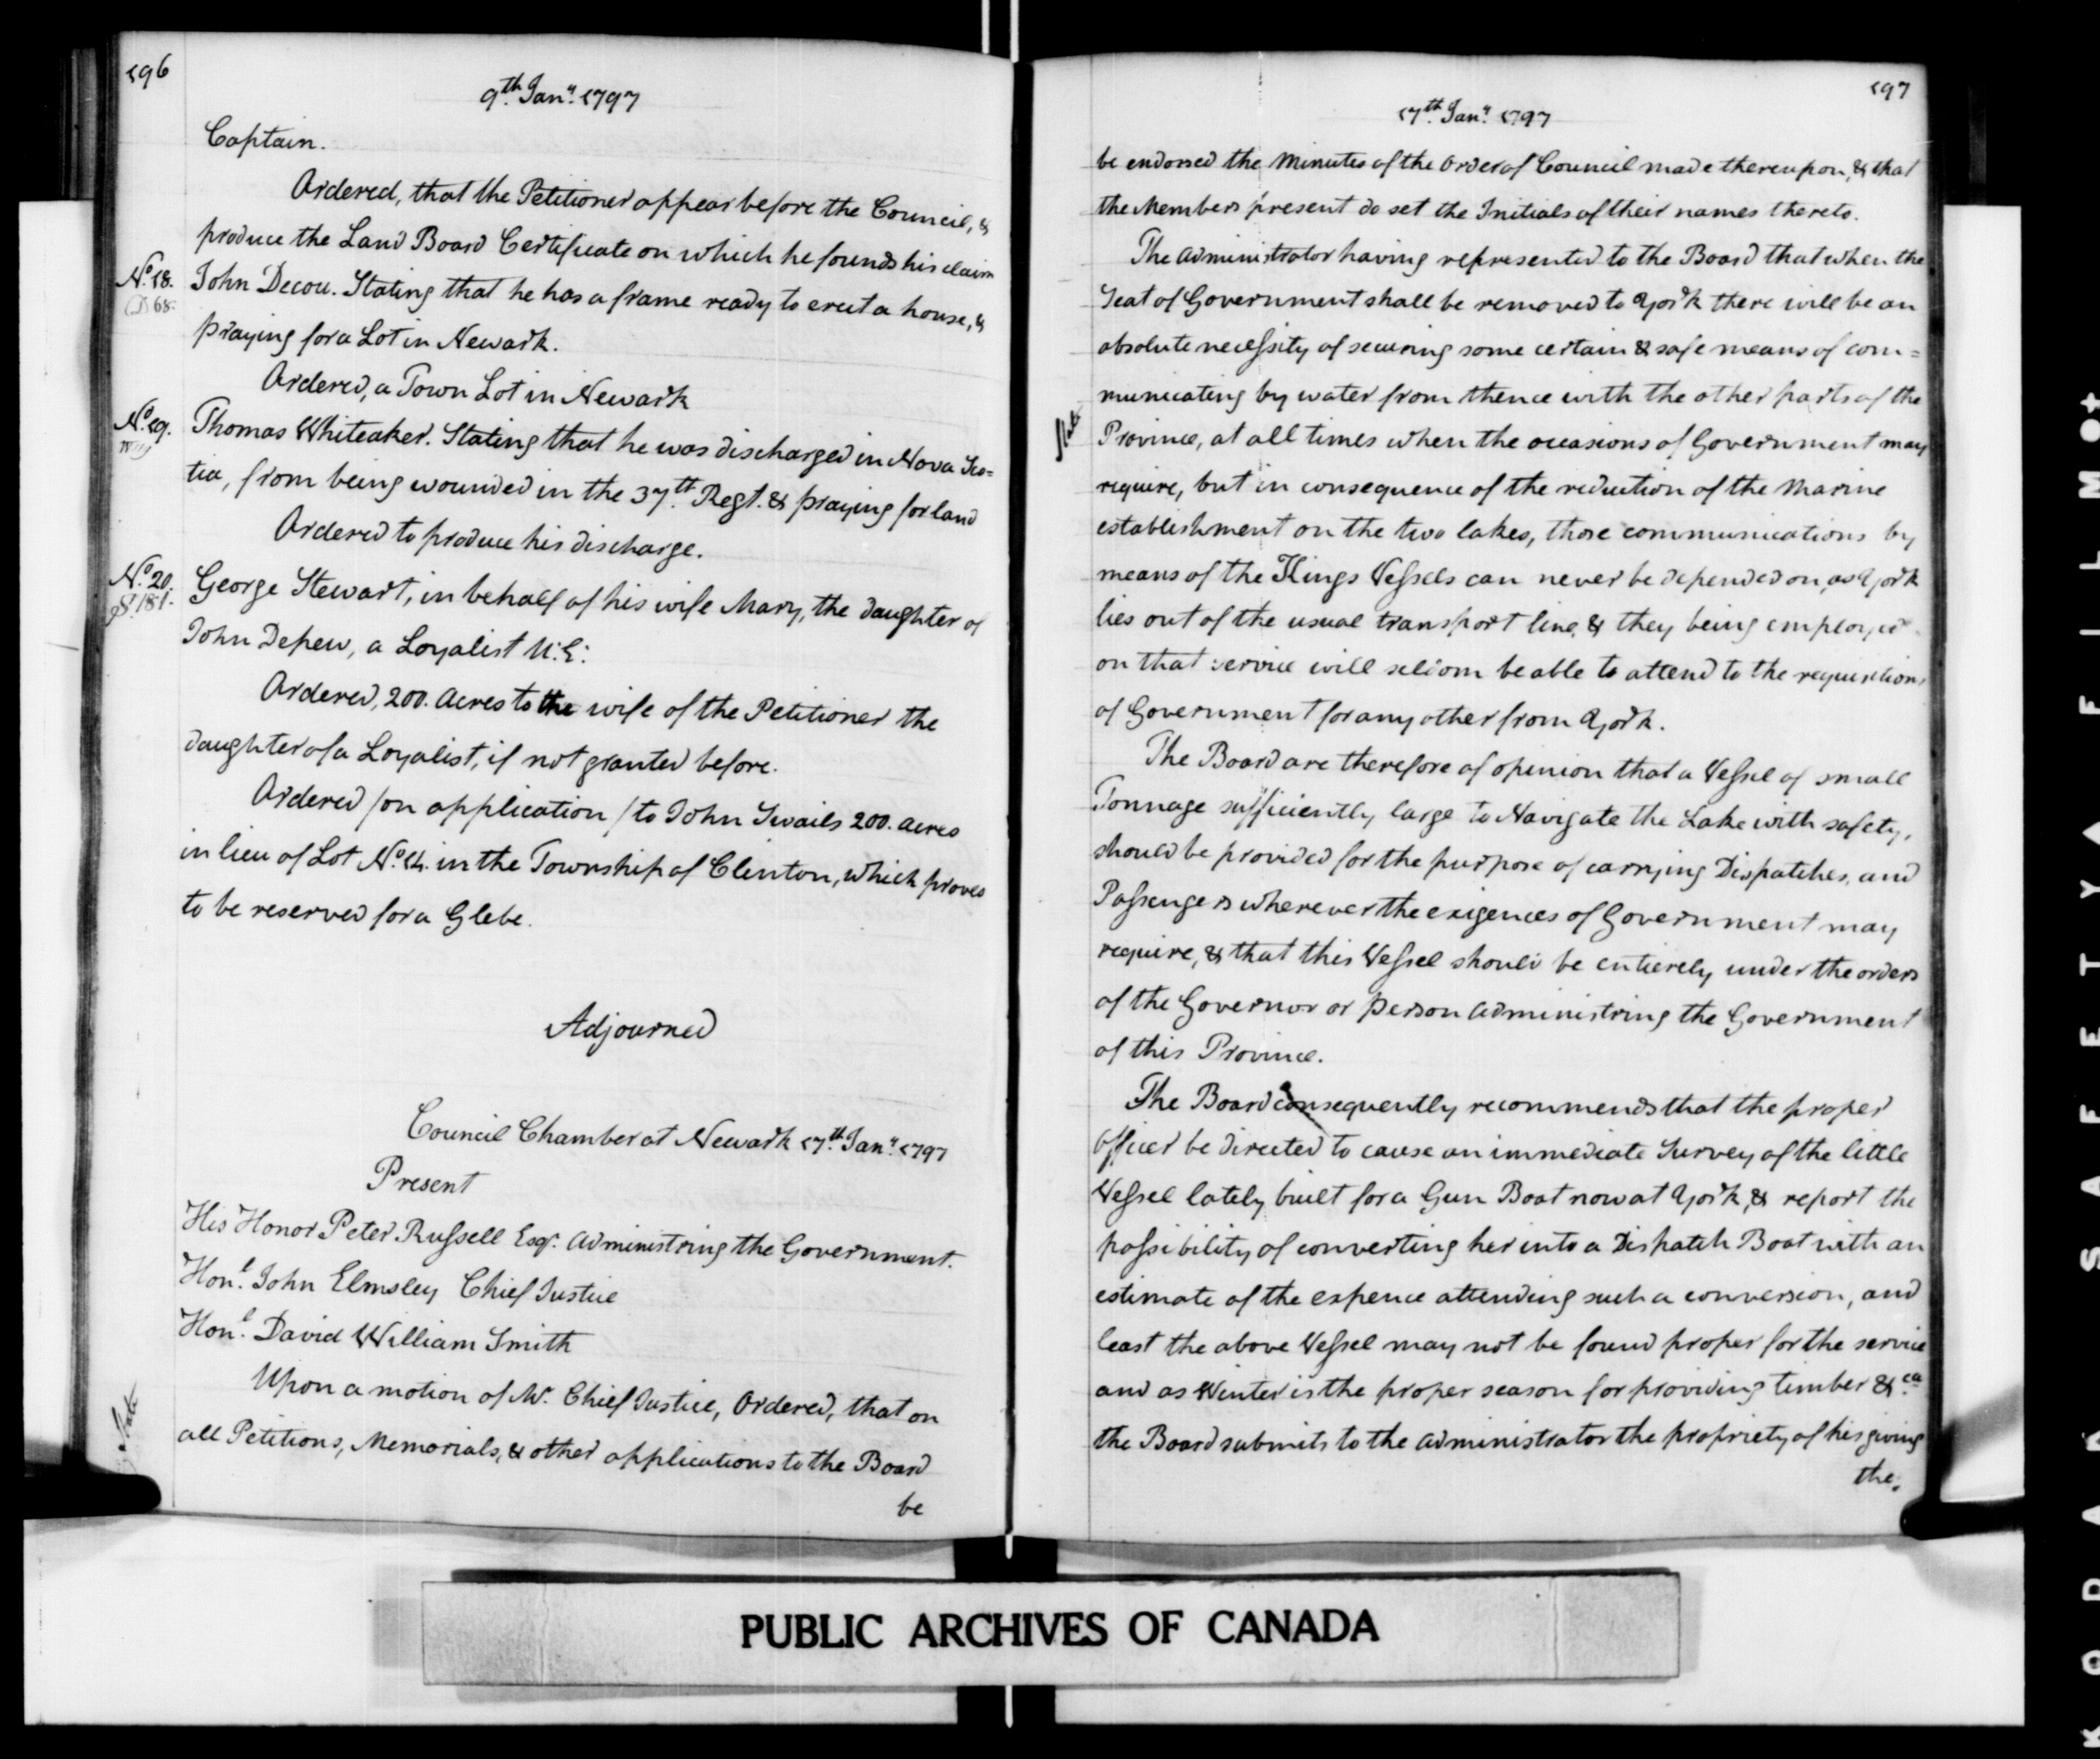 196
9th Jany. 1797
Captain.
Ordered, that the Petitioner appear before the Council, &
produce the Land Board Certificate on which he founds his claim
No. 18. John Decou. Stating that he has a frame ready to erect a house, &
D 68.
praying for a Lot in Newark.
Ordered, a Town Lot in Newark
No. 19. Thomas Whiteaker. Stating that he was discharged in Nova Sco=
tia, from being wounded in the 37th. Regt. & praying for land
Ordered to produce his discharge.
No. 20. George Stewart, in behalf of his wife Mary, the daughter of
S. 181.
John Depew, a Loyalist U.E:
Ordered, 200. Acres to the wife of the Petitioner the
daughter of a Loyalist, if not granted before.
Ordered /on application/ to John Swails 200. acres
in lieu of Lot No. 14. in the Township of Clinton, which proves
to be reserved for a Glebe.
Adjourned
Council Chamber at Newark 17th. Jany. 1797
Present
His Honor Peter Russell Esqr. Administring the Government.
Honl. John Elmsley Chief Justice
Honl. David William Smith
Upon a motion of Mr. Chief Justice, Ordered, that on
all Petitions, Memorials, & other applications to the Board
be
State
197
17th. Jany. 1797
be endorsed the Minutes of the Order of Council made thereupon, & that
the Members present do set the Initials of their names thereto.
The Administrator having represented to the Board that when the
Seat of Government shall be removed to York there will be an
absolute necessity of securing some certain & safe means of com=
municating by water from thence with the other parts of the
State
Province, at all times when the occasions of Government may
require, but in consequence of the reduction of the Marine
establishment on the two lakes, those communications by
means of the Kings Vessels can never be depended on, as York
lies out of the usual transport line, & they being employed
on that service will seldom be able to attend to the requisitions
of Government for any other from York.
The Board are therefore of opinion that a Vessel of small
Tonnage sufficiently large to Navigate the Lake with safety,
should be provided for the purpose of carrying Dispatches, and
Passengers wherever the exigences of Government may
require, & that this Vessel should be entierely under the orders
of the Governor or Person Administring the Government
of this Province.
The Board consequently recommends that the proper
Officer be directed to cause an immediate Survey of the little
Vessel lately built for a Gun Boat now at York, & report the
possibility of converting her into a Dispatch Boat with an
estimate of the expence attending such a conversion, and
least the above Vessel may not be found proper for the service
and as Winter is the proper season for providing timber &ca.
the Board submits to the Administrator the propriety of his giving
the
PUBLIC ARCHIVES OF CANADA
SAFETY FILM